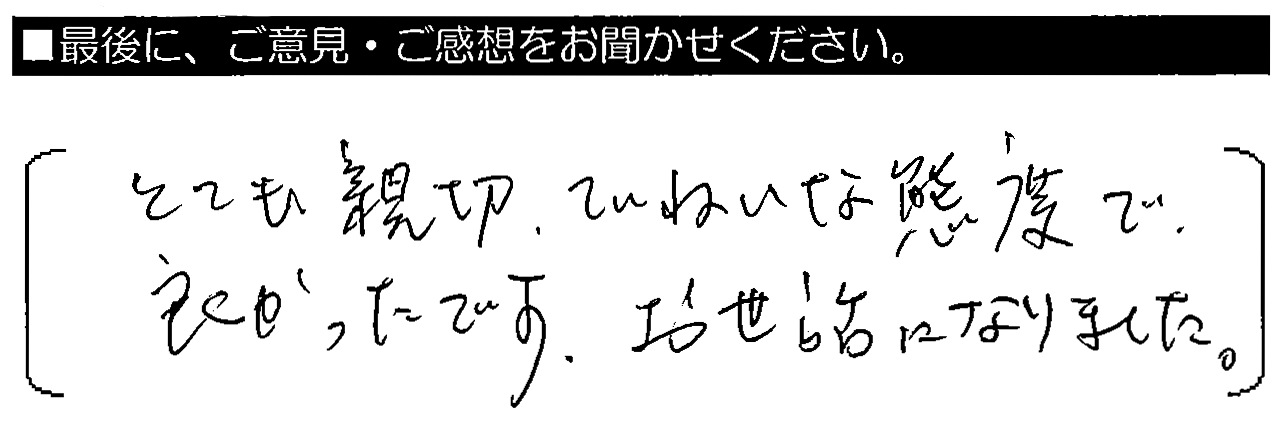 ■最後に、ご意見・ご感想をお聞かせください。
とても親切、ていねいな態度で、
良かったです。お世話になりました。